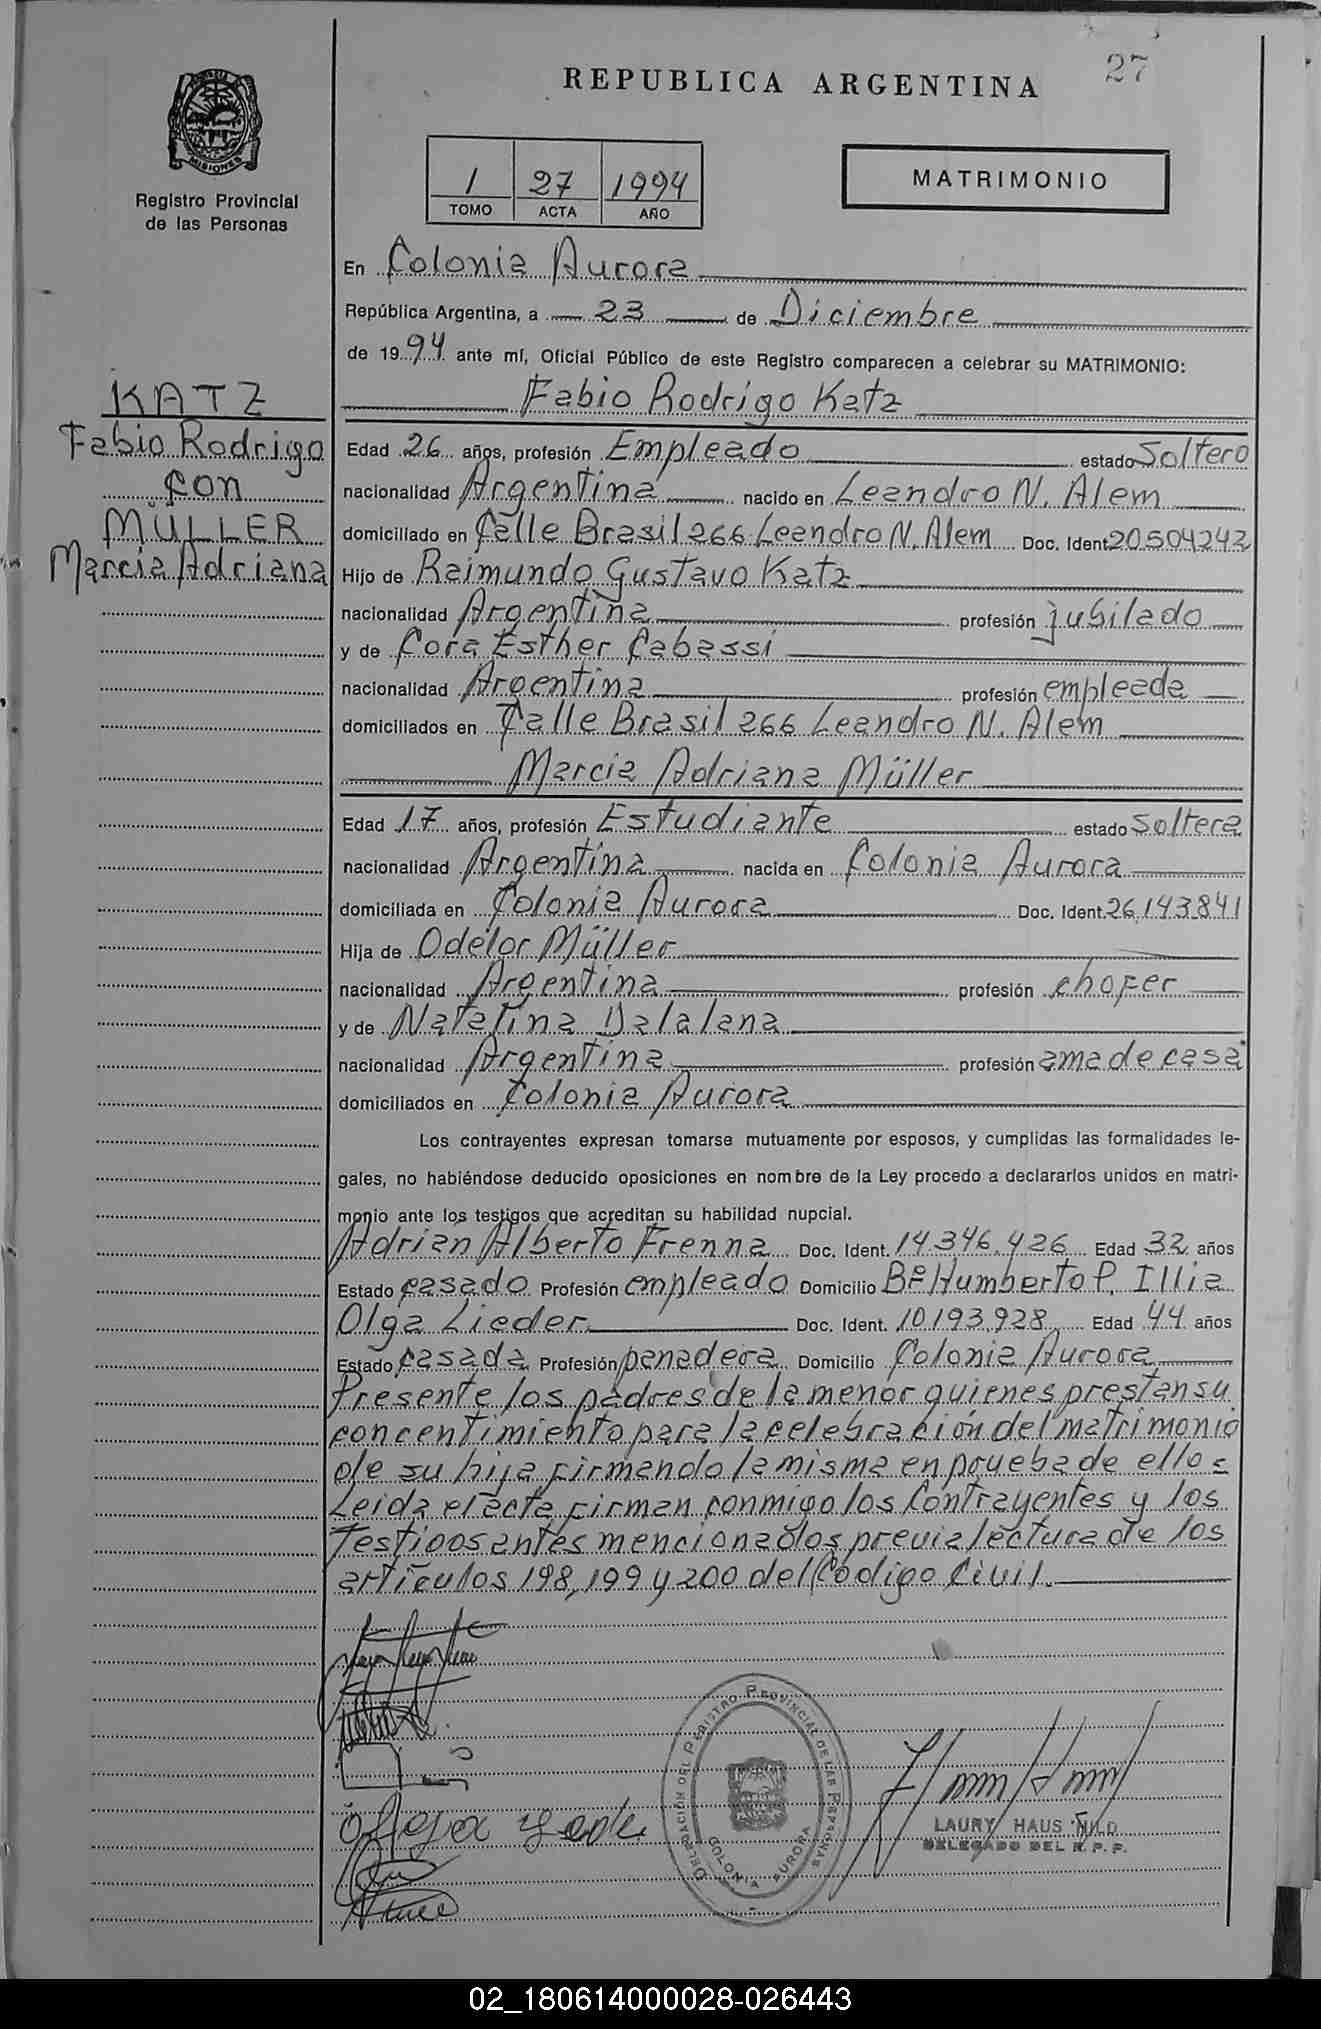 27
REPUBLICA ARGENTINA
MISIONES
Registro Provincial
de las Personas
1 27 1994
TOMO ACTA AÑO
MATRIMONIO
En Colonia Aurora
República Argentina, a 23 de Diciembre
de 1994 ante mí, Oficial Público de este Registro comparecen a celebrar su MATRIMONIO:
KATZ
Fabio Rodrigo
con
MÜLLER
Marcia Adriana
Fabio Rodrigo Katz
Edad 26 años, profesión Empleado estado Soltero
nacionalidad Argentina nacido en Leandro N. Alem
domiciliado en Calle Brasil 266 Leandro N. Alem Doc. Ident. 20504242
Hijo de Raimundo Gustavo Katz
nacionalidad Argentina profesión jubilado
y de Cora Esther Cabassi
nacionalidad Argentina profesión empleada
domiciliados en Calle Brasil 266 Leandro N. Alem
Marcia Adriana Müller
Edad 17 años, profesión Estudiante estado Soltera
nacionalidad Argentina nacida en Colonia Aurora
domiciliada en Colonia Aurora Doc. Ident. 26.143.841
Hija de Odelor Müller
nacionalidad Argentina profesión chofer
y de Natalina Dalalana
nacionalidad Argentina profesión ama de casa
domiciliados en Colonia Aurora
Los contrayentes expresan tomarse mutuamente por esposos, y cumplidas las formalidades le-
gales, no habiéndose deducido oposiciones en nombre de la Ley procedo a declararlos unidos en matri-
monio ante los testigos que acreditan su habilidad nupcial.
Adrián Alberto Frenna Doc. Ident. 14.346.426 Edad 32 años
Estado casado Profesión empleado Domicilio Bº Humberto P. Illia
Olga Lieder Doc. Ident. 10.193.928 Edad 44 años
Estado casada Profesión panadera Domicilio Colonia Aurora
Presente los padres de la menor quienes prestan su
concentimiento para la celebración del matrimonio
de su hija firmando la misma en prueba de ello =
Leida el acta firman conmigo los Contrayentes y los
Testigos antes mencionados previa lectura de los
artículos 198, 199 y 200 del Código Civil.
DELEGACION DEL REGISTRO PROVINCIAL DE LAS PERSONAS
COLONIA AURORA
LAURY HAUS HILD
DELEGADO DEL R. P. P.
02_180614000028-026443